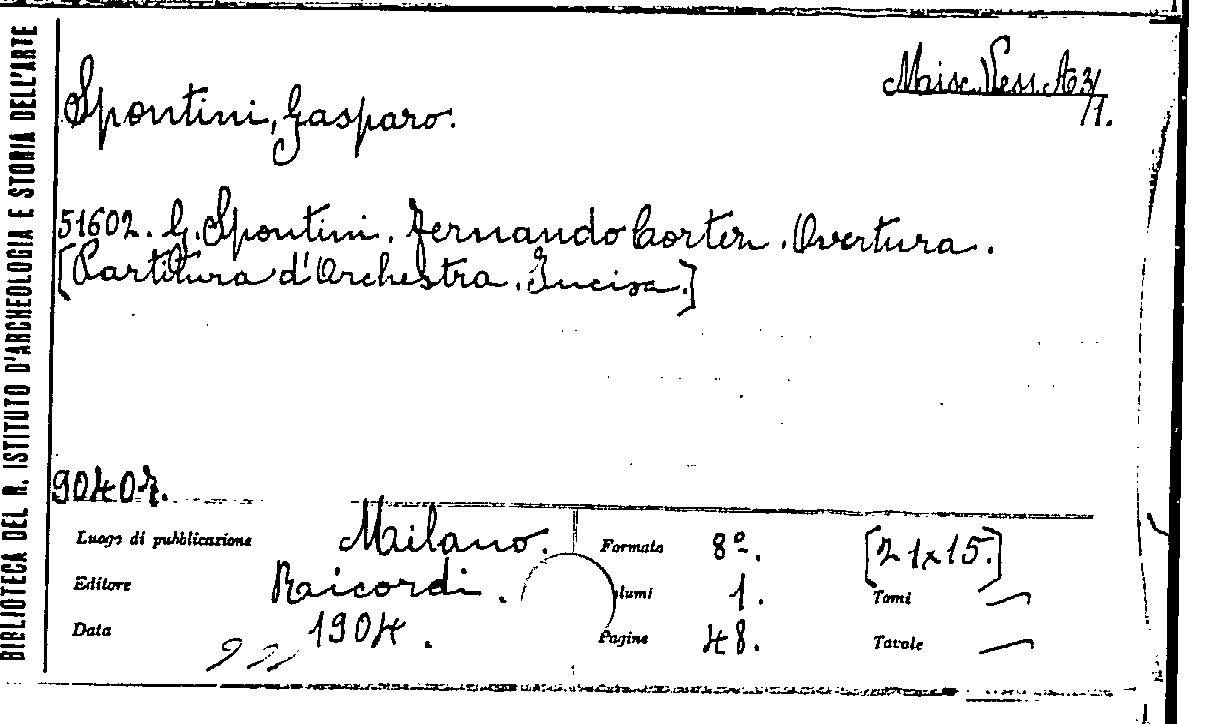 BIBLIOTECA DEL R. ISTITUTO D'ARCHEOLOGIA E STORIA DELL'ARTE
Misc. Vess. A 3/
/1.
Spontini, Gasparo.
51602. G. Spontini. Fernando Cortez. Overtura.
[Partitura d'Orchestra. Incisa.]
90407.
Luogo di pubblicazione Milano. Formato 8º. [21x15.]
Editore Ricordi. lumi 1. Tomi —
Data 1904. Pagine 48. Tavole —